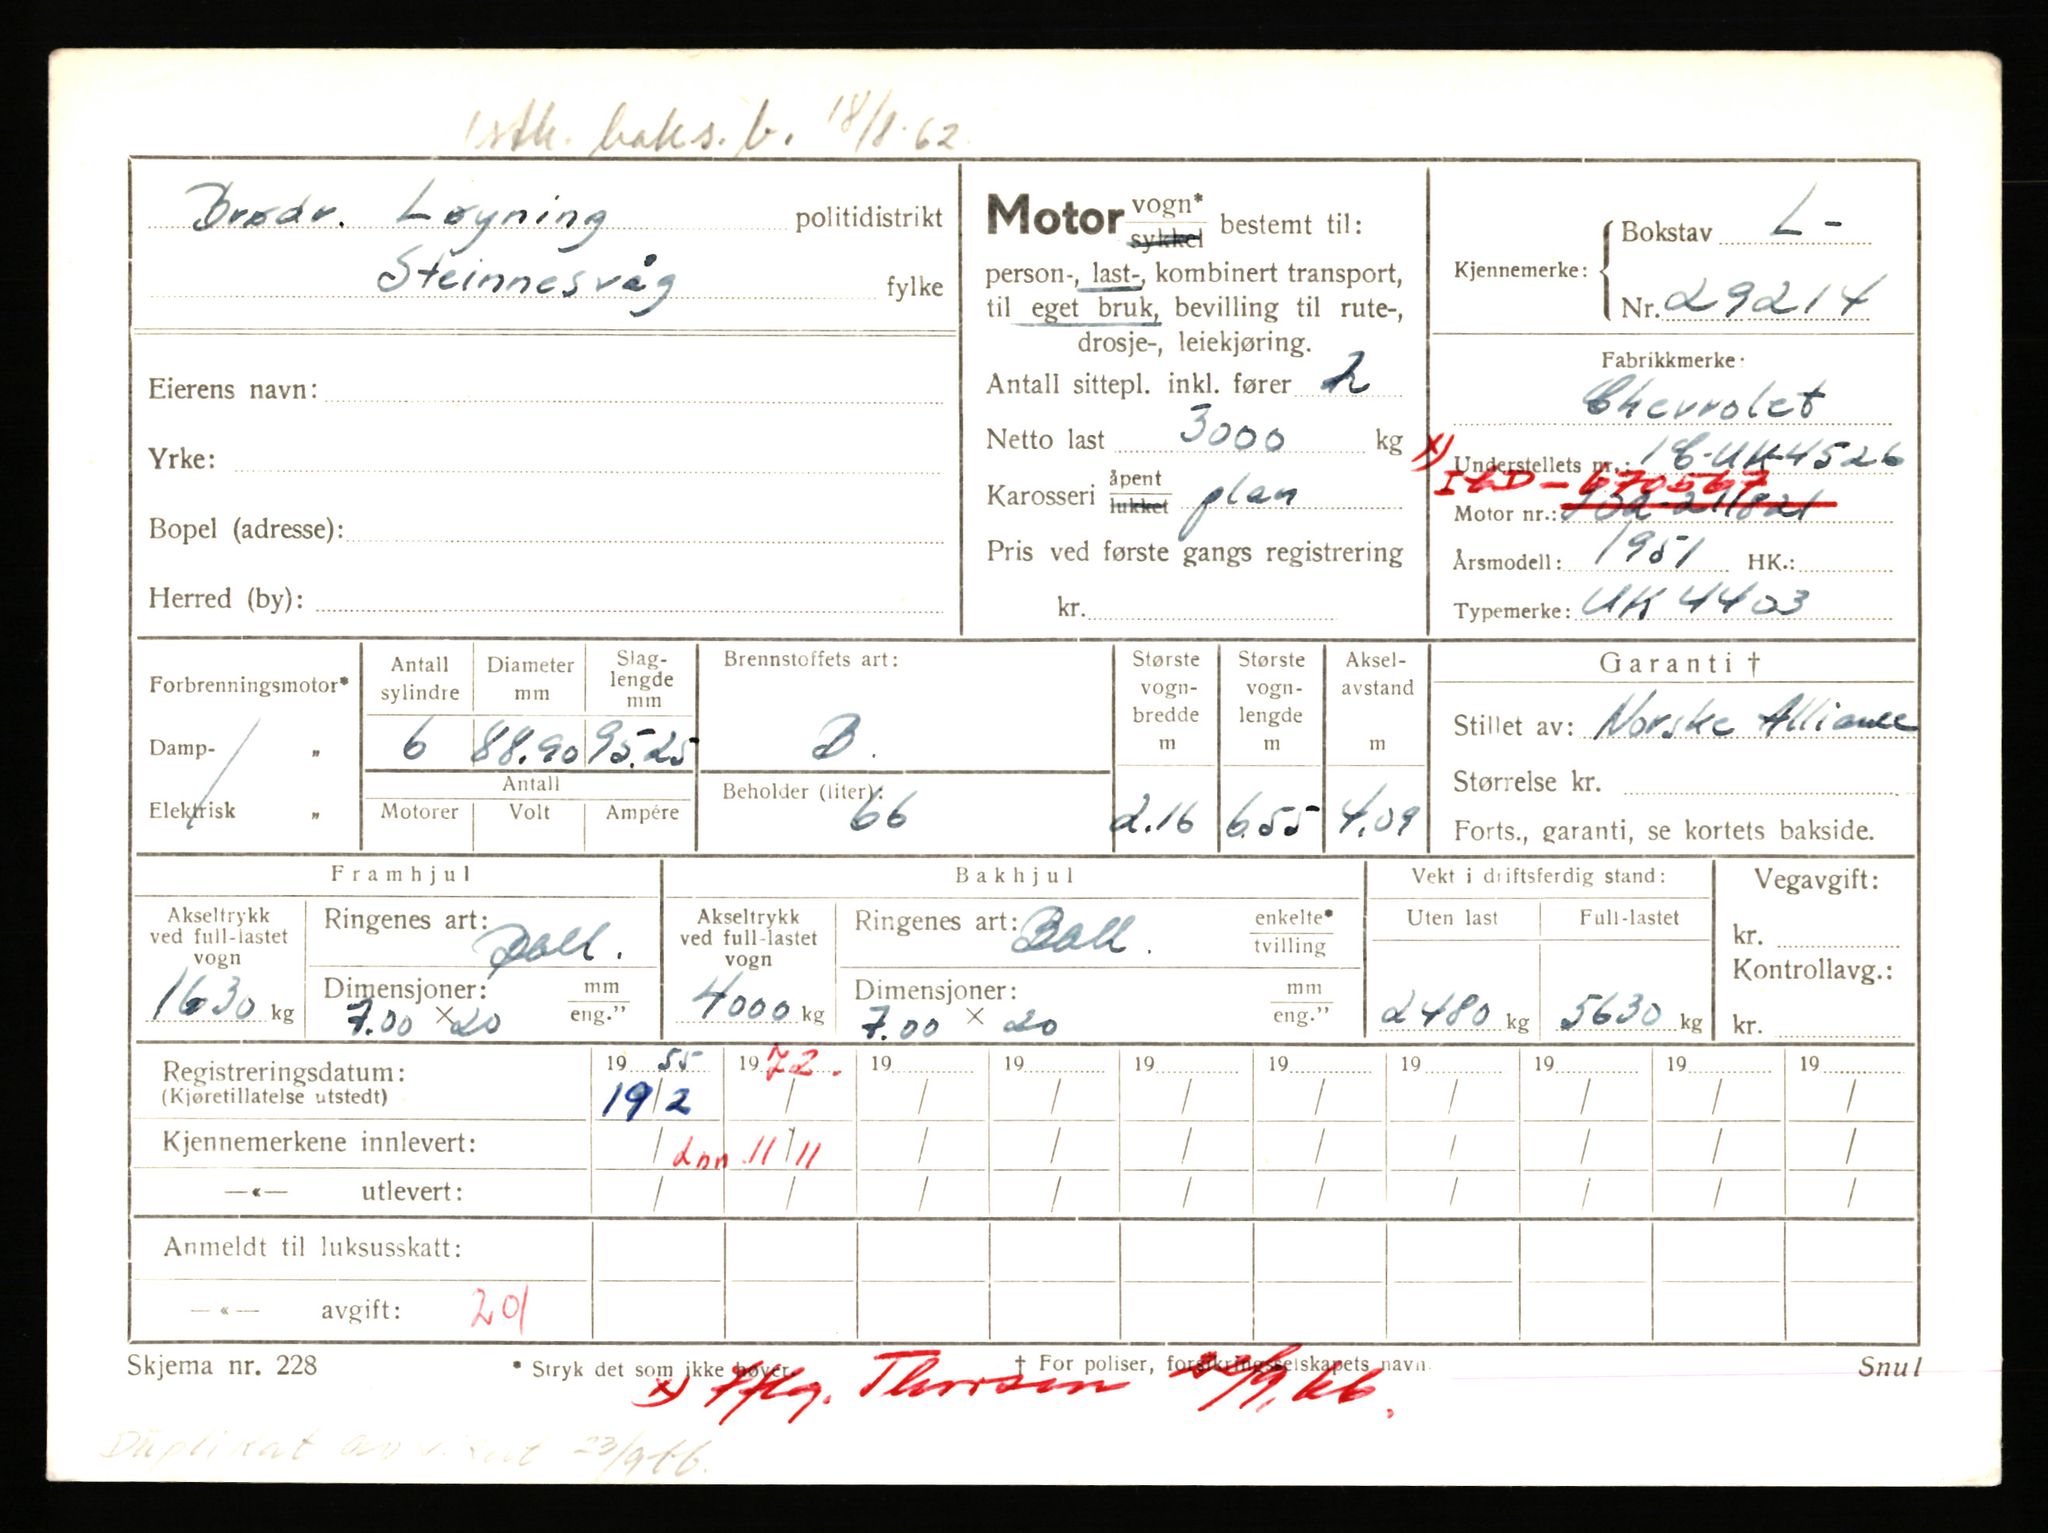 1 stk. baks. b. 18/8-62
Brødr. Løyning politidistrikt
Steinnesvåg fylke
Eierens navn:
Yrke:
Bopel (adresse):
Herred (by):
Motor vogn* sykkel bestemt til:
person-, last-, kombinert transport,
til eget bruk, bevilling til rute-,
drosje-, leiekjøring.
Antall sittepl. inkl. fører 2
Netto last 3000 kg
Karosseri åpent lukket plan
Pris ved første gangs registrering
kr.
Kjennemerke: Bokstav L-
Nr. 29214
Fabrikkmerke:
Chevrolet
x) Understellets nr.: 18-UK4526
IbD-670567
Motor nr.:
Årsmodell: 1951 HK.:
Typemerke: UK 4403
Forbrenningsmotor*
Damp- „
Elektrisk „
Antall sylindre Diameter mm Slag-lengde mm
6 88.90 95.25
Antall
Motorer Volt Ampére
Brennstoffets art:
B.
Beholder (liter):
66
Største vogn-bredde m
2.16
Største vogn-lengde m
6.55
Aksel-avstand m
4.09
Garanti †
Stillet av: Norske Alliance
Størrelse kr.
Forts., garanti, se kortets bakside.
Framhjul
Akseltrykk ved full-lastet vogn
1630 kg
Ringenes art: Ball.
Dimensjoner: mm eng."
7.00 × 20
Bakhjul
Akseltrykk ved full-lastet vogn
4000 kg
Ringenes art: Ball. enkelte* tvilling
Dimensjoner: mm eng."
7.00 × 20
Vekt i driftsferdig stand:
Uten last Full-lastet
2480 kg 5630 kg
Vegavgift:
kr.
Kontrollavg.:
kr.
Registreringsdatum: 19 55 19 72. 19 19 19 19 19 19 19 19
(Kjøretillatelse utstedt) 19/2 / / / / / / / / /
Kjennemerkene innlevert: / inn 11/11 / / / / / / / /
—«— utlevert: / / / / / / / / / /
Anmeldt til luksusskatt:
—«— avgift: 201
Skjema nr. 228 * Stryk det som ikke høver. † For poliser, forsikringsselskapets navn. Snul
x) Thorsen /9.66.
Duplikat 23/9-66.